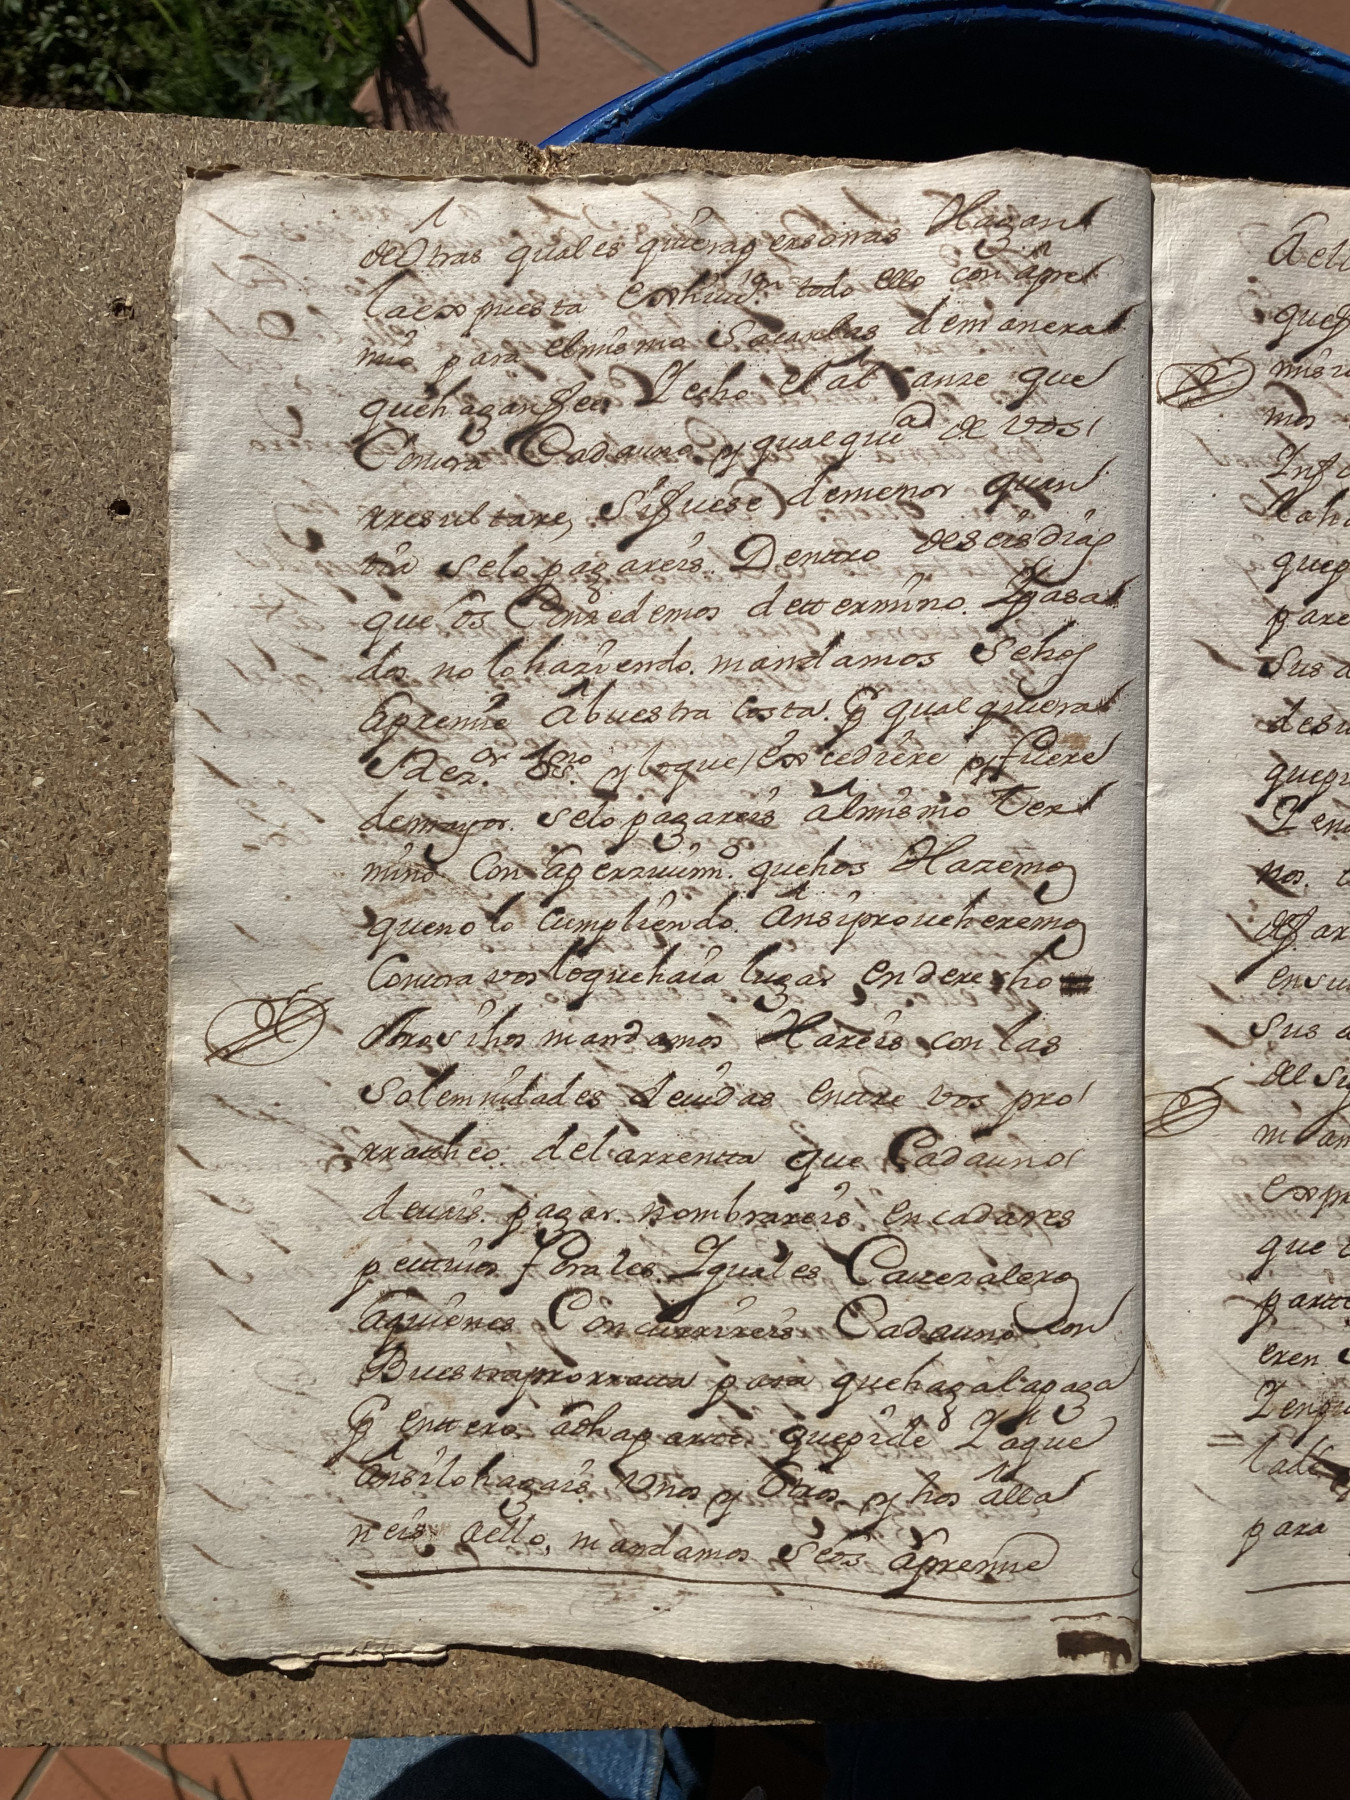 de Otras quales quierap ersonas Hagan
la expuesta Exhiuⁿ todo ello con apre
mio para elmismo Sacarlas demanera
quehagan fee Y echo el al Canze que
Contra Cadauno y qualquiª de vos
rresultare, Sifuese demenor quan
tia selo pagareis Dentro de seis dias
que os Conzedemos dettermino. Y pasa
dos no lo haziendo mandamos Sehos
apremie abuestra costa. Pr qualquiera
Ssno y loque excediere y fuere
demayor. selo pagareis almismo ter
mino Con aperziuimº. quehos Haremos
queno lo Cumpliendo. Ansi proueheremos
Contra vos loquehaia lugar en derecho
Otrosi hos mandamos Hareis con las
solemnidades deuidas entre vos pro
rratheo del arrentta que Cadauno
deueis. pagar. nombrareis en cadares
pettiuos forales Yguales Cauezaleros
aquienes Concurrireis Cadauno con
Buestraprorratta para quehagalapaga
Pr enttero adha partte quepide Y aque
Ansilohagais Vnos y Otros y hos alla
neis aello, mandamos Seos apremie
Aell
quep
misi
mos
Ynf
laha
quep
pare
Sus a
desu
quequ
Y en
nos. t
de par
ensu
sus a
del su
m an
expr
que
partt
eren
Y enqu
para